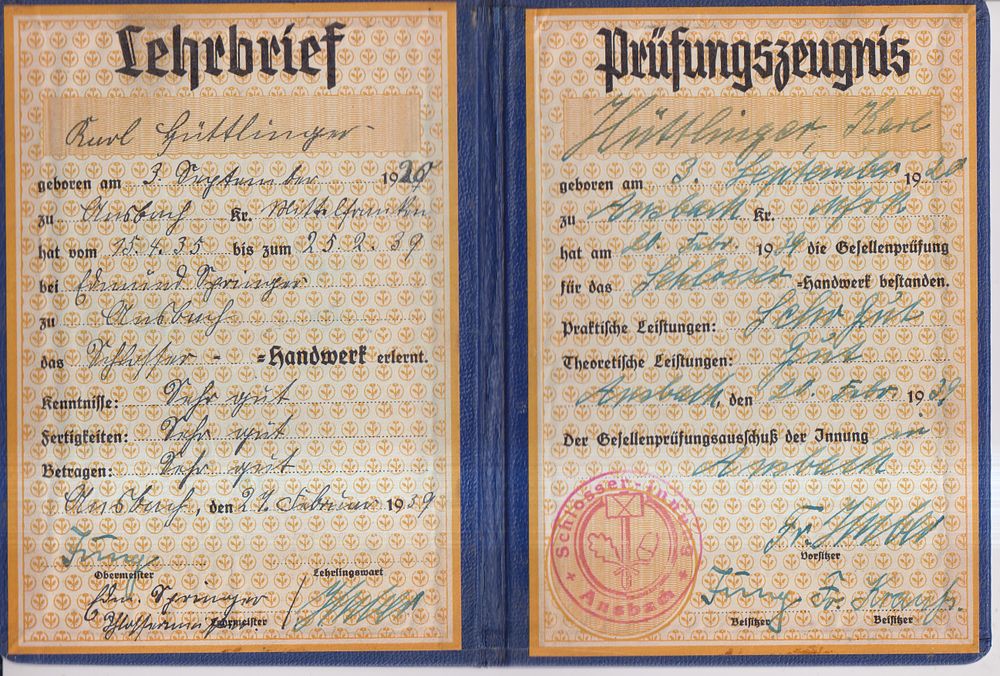 Lehrbrief
Karl Hüttlinger
geboren am 3. September 1920
zu Ansbach Kr. Mittelfranken
hat vom 15.4.35 bis zum 25.2.39
bei Edmund Springer
zu Ansbach
das Schlosser- =Handwerk erlernt.
Kenntnisse: Sehr gut
Fertigkeiten: Sehr gut
Betragen: Sehr gut
Ansbach, den 27. Februar 1939
Jung
Obermeister Lehrlingswart
Edm. Springer
Schlossermeister Lehrmeister
Prüfungszeugnis
Hüttlinger, Karl
geboren am 3. September 1920
zu Ansbach Kr. Mfrk
hat am 20. Febr. 1939 die Gesellenprüfung
für das Schlosser =Handwerk bestanden.
Praktische Leistungen: Sehr gut
Theoretische Leistungen: Gut
Ansbach, den 20. Febr. 1939
Der Gesellenprüfungsausschuß der Innung in
Ansbach
Schlosser-Innung
Ansbach
Fr.
Vorsitzer
Jung Fr. Krauß.
Beisitzer Beisitzer